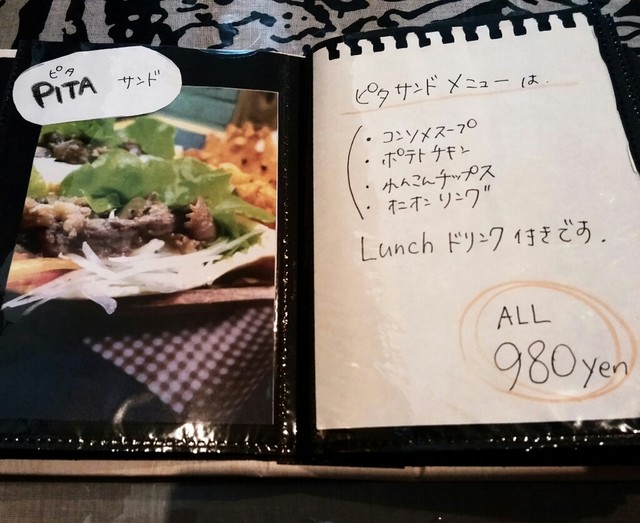 ピタ
PITA サンド
ピタ サンド メニュー は.
・コンソメスープ
・ポテトチキン
・れんこんチップス
・オニオンリング
Lunch ドリンク 付きです.
ALL
980yen